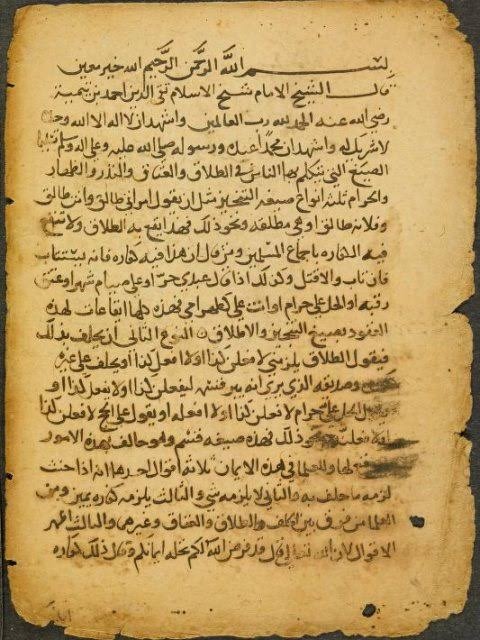 بسم الله الرحمن الرحيم الله خير معين
قال الشيخ الامام شيخ الاسلام تقى الدين احمد بن تيمية
رضي الله عنه الحمد لله رب العالمين واشهد ان لا اله الا الله وحده
لا شريك له واشهد ان محمدا عبده ورسوله صلى الله عليه وعلى اله وسلم تسليما
الصيغ التي يتكلم بها الناس في الطلاق والعتاق والنذر والظهار
والحرام ثلثة انواع صيغه التنجيز مثل ان يقول امراتي طالق او انت طالق
او فلانه طالق او هي مطلقه ونحو ذلك فهذا يقع به الطلاق ولا تنفع
فيه الكفاره باجماع المسلمين ومن قال ان هذا فيه كفاره فانه يستتاب
فان تاب والا قتل وكذلك اذا قال عبدي حر او علي صيام شهر او عتق
رقبه او الحل علي حرام او انت علي كظهر امي فهذه كلها ايقاعات لهذه
العقود بصيغ التنجيز والاطلاق النوع الثاني ان يحلف بذلك
فيقول الطلاق يلزمني لافعلن كذا او لا افعل كذا او يحلف على غيره
وصديقه الذي يرى انه يبر قسمه ليفعلن كذا او لا يفعل كذا او
يقول الحل علي حرام لافعلن كذا او لا افعله او يقول علي الحج لافعلن كذا
ونحو ذلك فهذه صيغه قسم وهو حالف بهذه الامور
وللعلما في هذه الايمان ثلاثة اقوال احدها انه اذا حنث
لزمه ما حلف به والثاني لا يلزمه شي والثالث يلزمه كفاره يمين ومن
العلما من فرق بين الحلف والطلاق والعتاق وغيرها والثالث اظهر
الاقوال لان الله تعالى قال قد فرض الله لكم تحله ايمانكم وقال ذلك كفاره